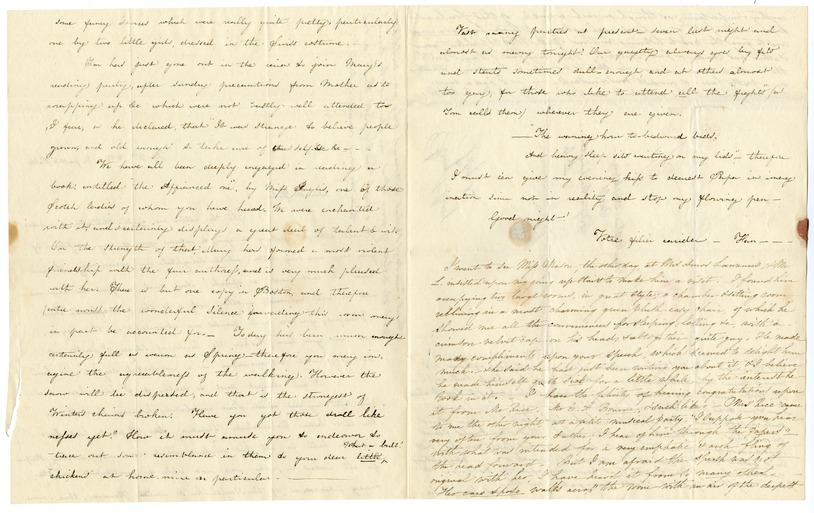 some funny dances which were really quite pretty, particularly
one by two little girls, dressed in the Swiss costume. -
has just gone out in the rain to join Mary's
reading party, after sundry precautions from Mother as to
wrapping up &c which were not vastly well attended to
I fear, as he declared, that "it was strange to believe people
grown, and old enough to take care of
We have all been deeply engaged in reading a
book, entitled the "Affianced one", by Miss one of those
Scotch ladies of whom you have heard. We were enchanted
with it, and certainly displays a great deal of talent &
On the strength of that Mary has formed a most violent
friendship with the fair authoress, and is very much pleased
with her. There is but one copy in Boston, and therefore
the wonderful silence
in part be accounted for - Today has been, warm enough
certainly full as warm as Spring, therefore you may im-
agine the agreeableness of the walking. However the
snow will be dispersed, and that is the strongest of
Winters chains broken. Have you got those droll like
nesses yet? How it must amuse you to endeavor to
what a bull!
trace out some resemblance in them to your dear little
chickens at home, mine in particular. -
Vast many parties at present seven last night and
almost as many tonight! Our gayety always goes by fits
and starts sometimes dull enough and at others almost
too gay, for those who like to attend all the "fights" as
Tom calls them, wherever they are given.
- "The warning how to-bedward bids,
And heavy sleep sits waiting on my lids" - therefore
I must e'en give my evening kiss to dearest Papa in imag-
ination since not in reality and stop my flowing pen -
Good night -!
Votre fille
I went to see Miss the other day at Mrs Amos Lawrence, & Mr
L. insisted upon my going up stairs to make him a visit. I found him
occupying two large rooms, in great style, a chamber & sitting room
reclining in a most charming green easy chair, of which he
showed me all the conveniences for sleeping, lolling &c, with a
crimson velvet cap on his head, & altogether quite gay. He made
many compliments upon your speech, which seemed to delight him
much. He said he had just been writing you about it & I believe
he made himself quite sick for a little while by the interest he
took in it. I have the plenty of hearing congratulations upon
it from Mr Rice, Mr & such like. Miss Rice came
to me the other night at a musical party "I suppose you hear
very often from your Father, I hear of him through the Papers"
with what was intended for a very emphatic & of
the head forward. But I am afraid the speech was not
original with her, I have heard it from so many
walks across the room with an air of the deepest